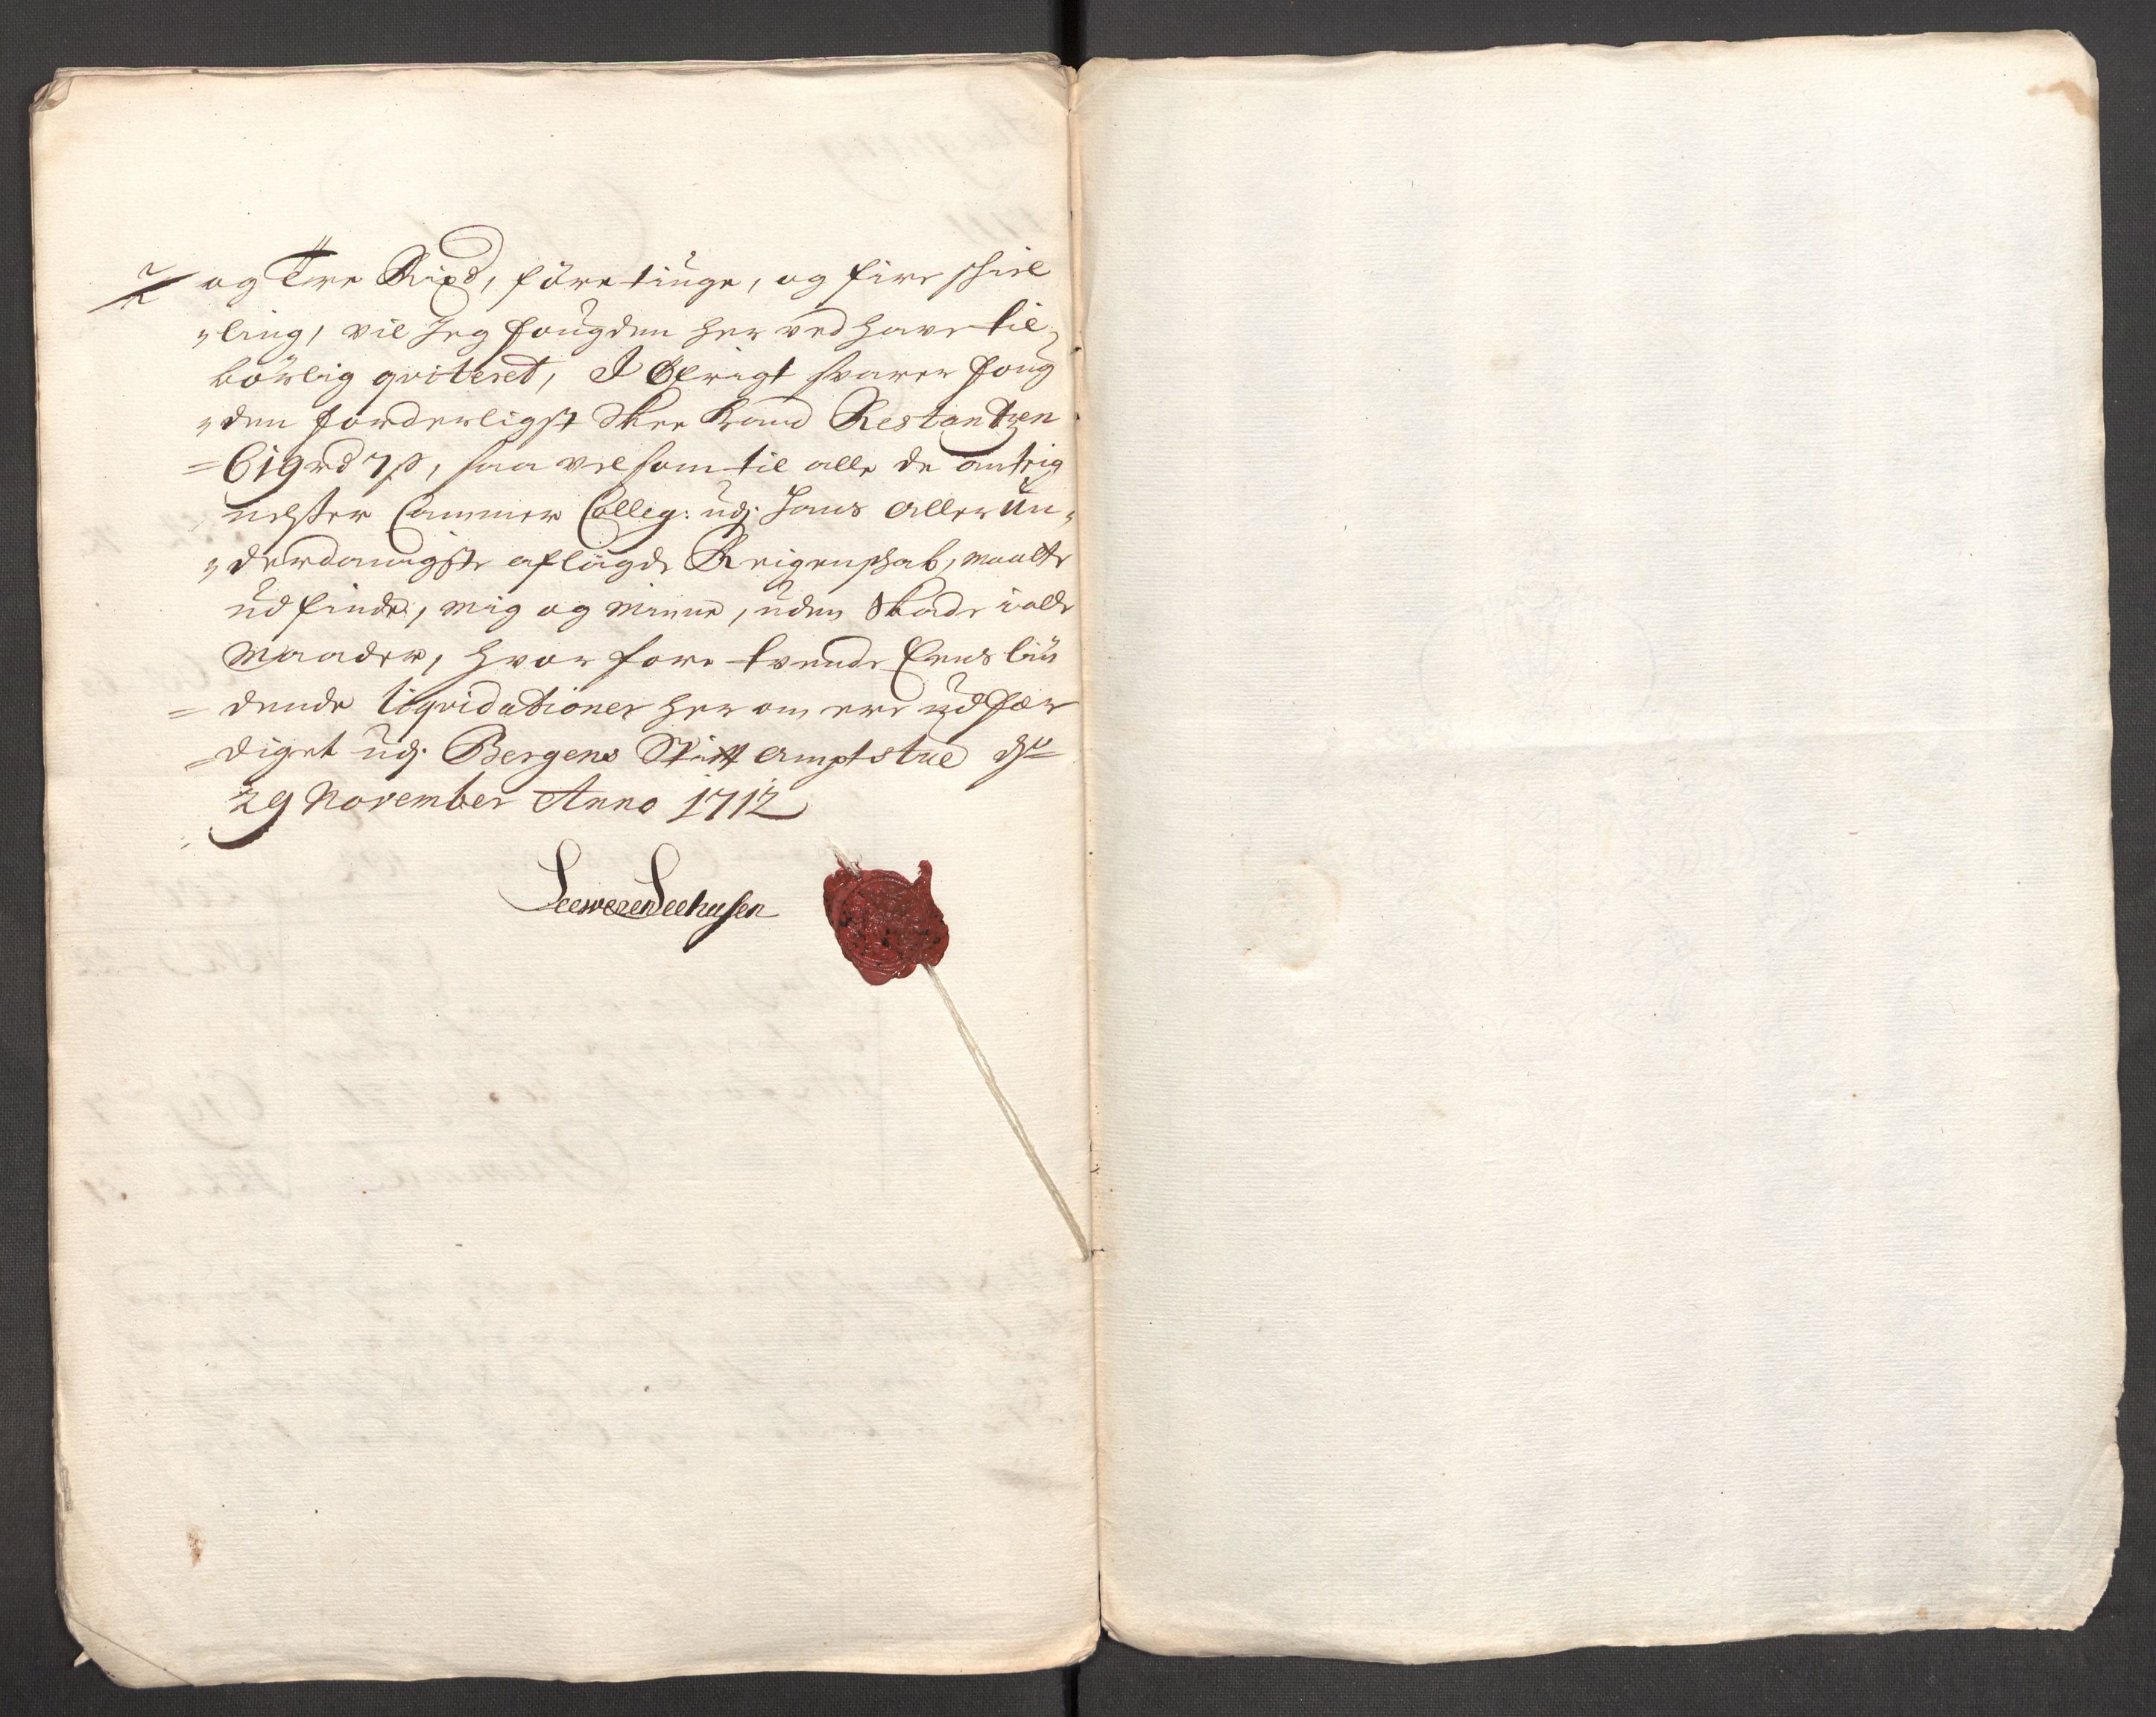 og Tre Rixd, före tiuge, og fire schiel
"ling, vil Jeg fougden her ved have til
börlig qviteret, I Öfrigt svarer foug
"den forderligst Skee kand Restantzen
=619 rd 7 s, saa vel som til alle de
Cammer Colleg: udj. hans aller un"
"derdanigste aflagde Reigenschab, maatte
udfinde, mig og minne, uden Skade i alle
Maader, hvor fore tvende Eens lüü
= dende liqvidationer her om ere udfær
=diget udj. Bergens Stift amptstue dn
29 November Anno 1712
Seeweren Seehusen